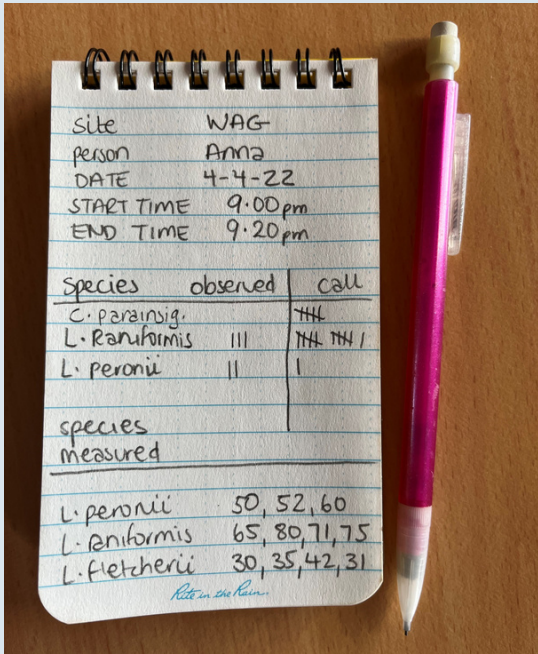 site WAG
person Anna
DATE 4-4-22
START TIME 9.00pm
END TIME 9.20pm
Species observed call
C. parainsig. 𝍸
L. Raniformis ||| 𝍸 𝍸 |
L. peronii || |
species
measured
L. peronii 50, 52, 60
L. aniformis 65, 80, 71, 75
L. fletcherii 30, 35, 42, 31
Rite in the Rain